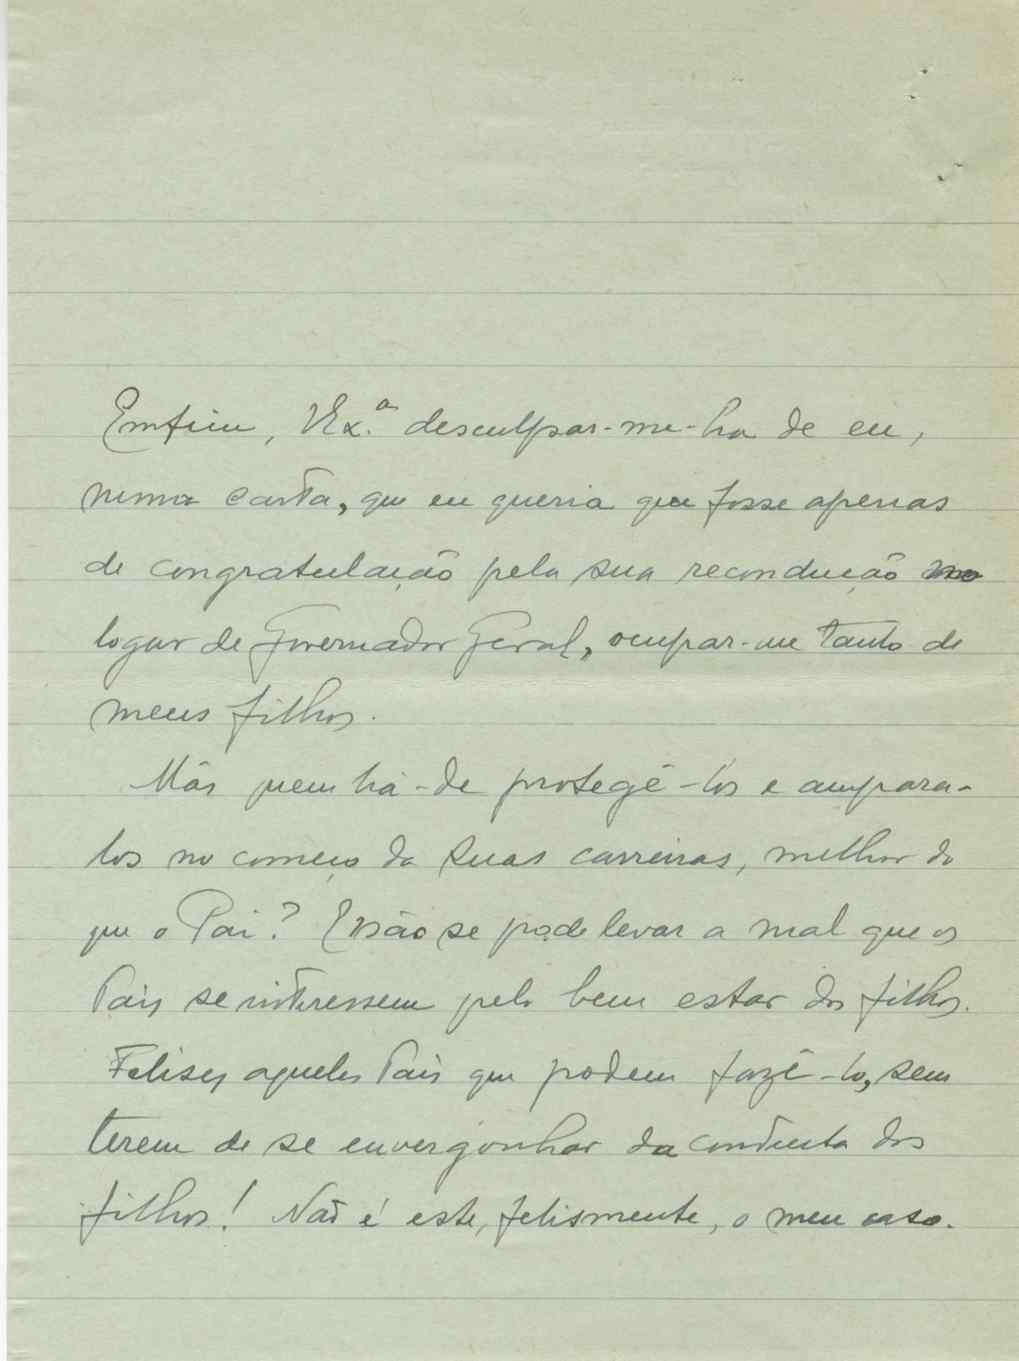 Emfim, VEx.ª desculpar-me-ha de eu,
numa carta, que eu queria que fosse apenas
de congratulação pela sua recondução no
logar de Governador Geral, ocupar-me tanto de
meus filhos.
Mâs quem há-de protegê-los e ampara-
los no começo da suas carreiras, melhor do
que o Pai? E não se pode levar a mal que os
Pais se interessem pelo bem estar dos filhos.
Felises aqueles Pais que podem fazê-lo, sem
terem de se envergonhar da conducta dos
filhos! Não é este, felismente, o meu caso.